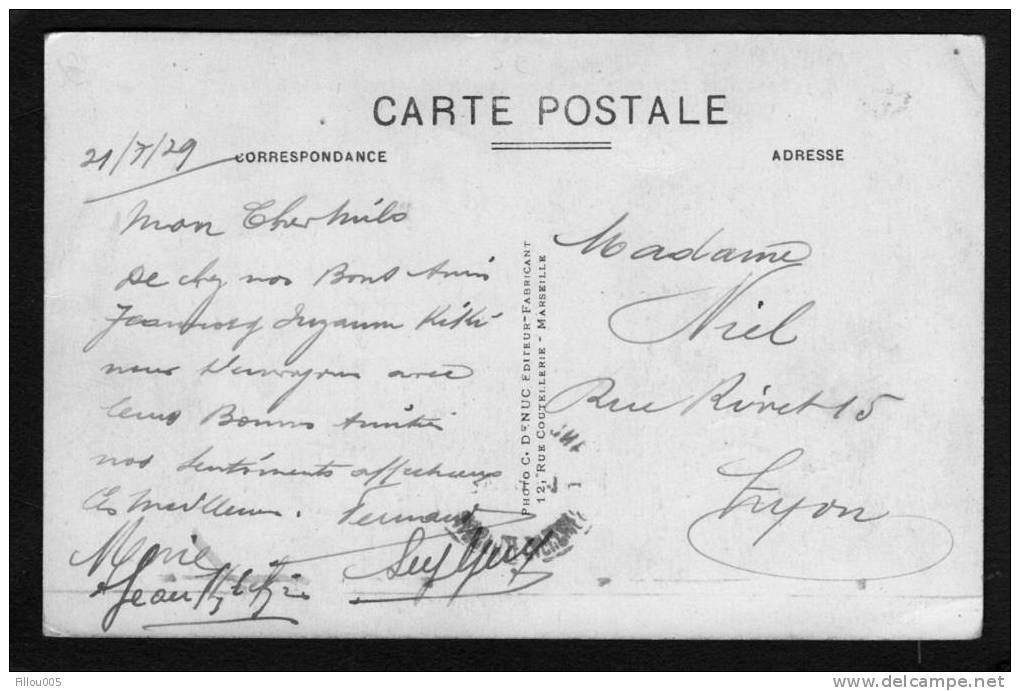 CARTE POSTALE
21/7/29
CORRESPONDANCE
ADRESSE
Mon Cher
De chez nos Bons Amis
Suzanne Kiki
nous envoyons avec
leurs Bonnes Amitiés
nos sentiments affectueux
les meilleurs. Fernand
Marie
Jean
Madame
Niel
Rue Rivet 15
Lyon
PHOTO C. DENUC EDITEUR-FABRICANT
12, RUE COUTELLERIE - MARSEILLE
Filou005
www.delcampe.net